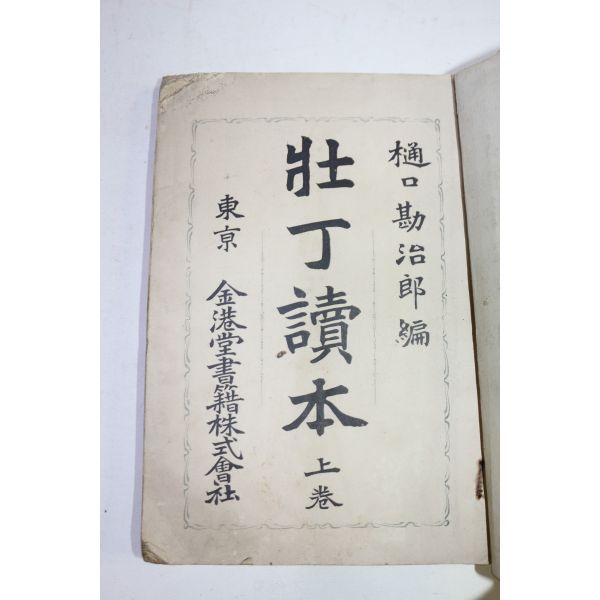 樋口勘治郎編
壯丁讀本
上卷
東京
金港堂書籍株式會社